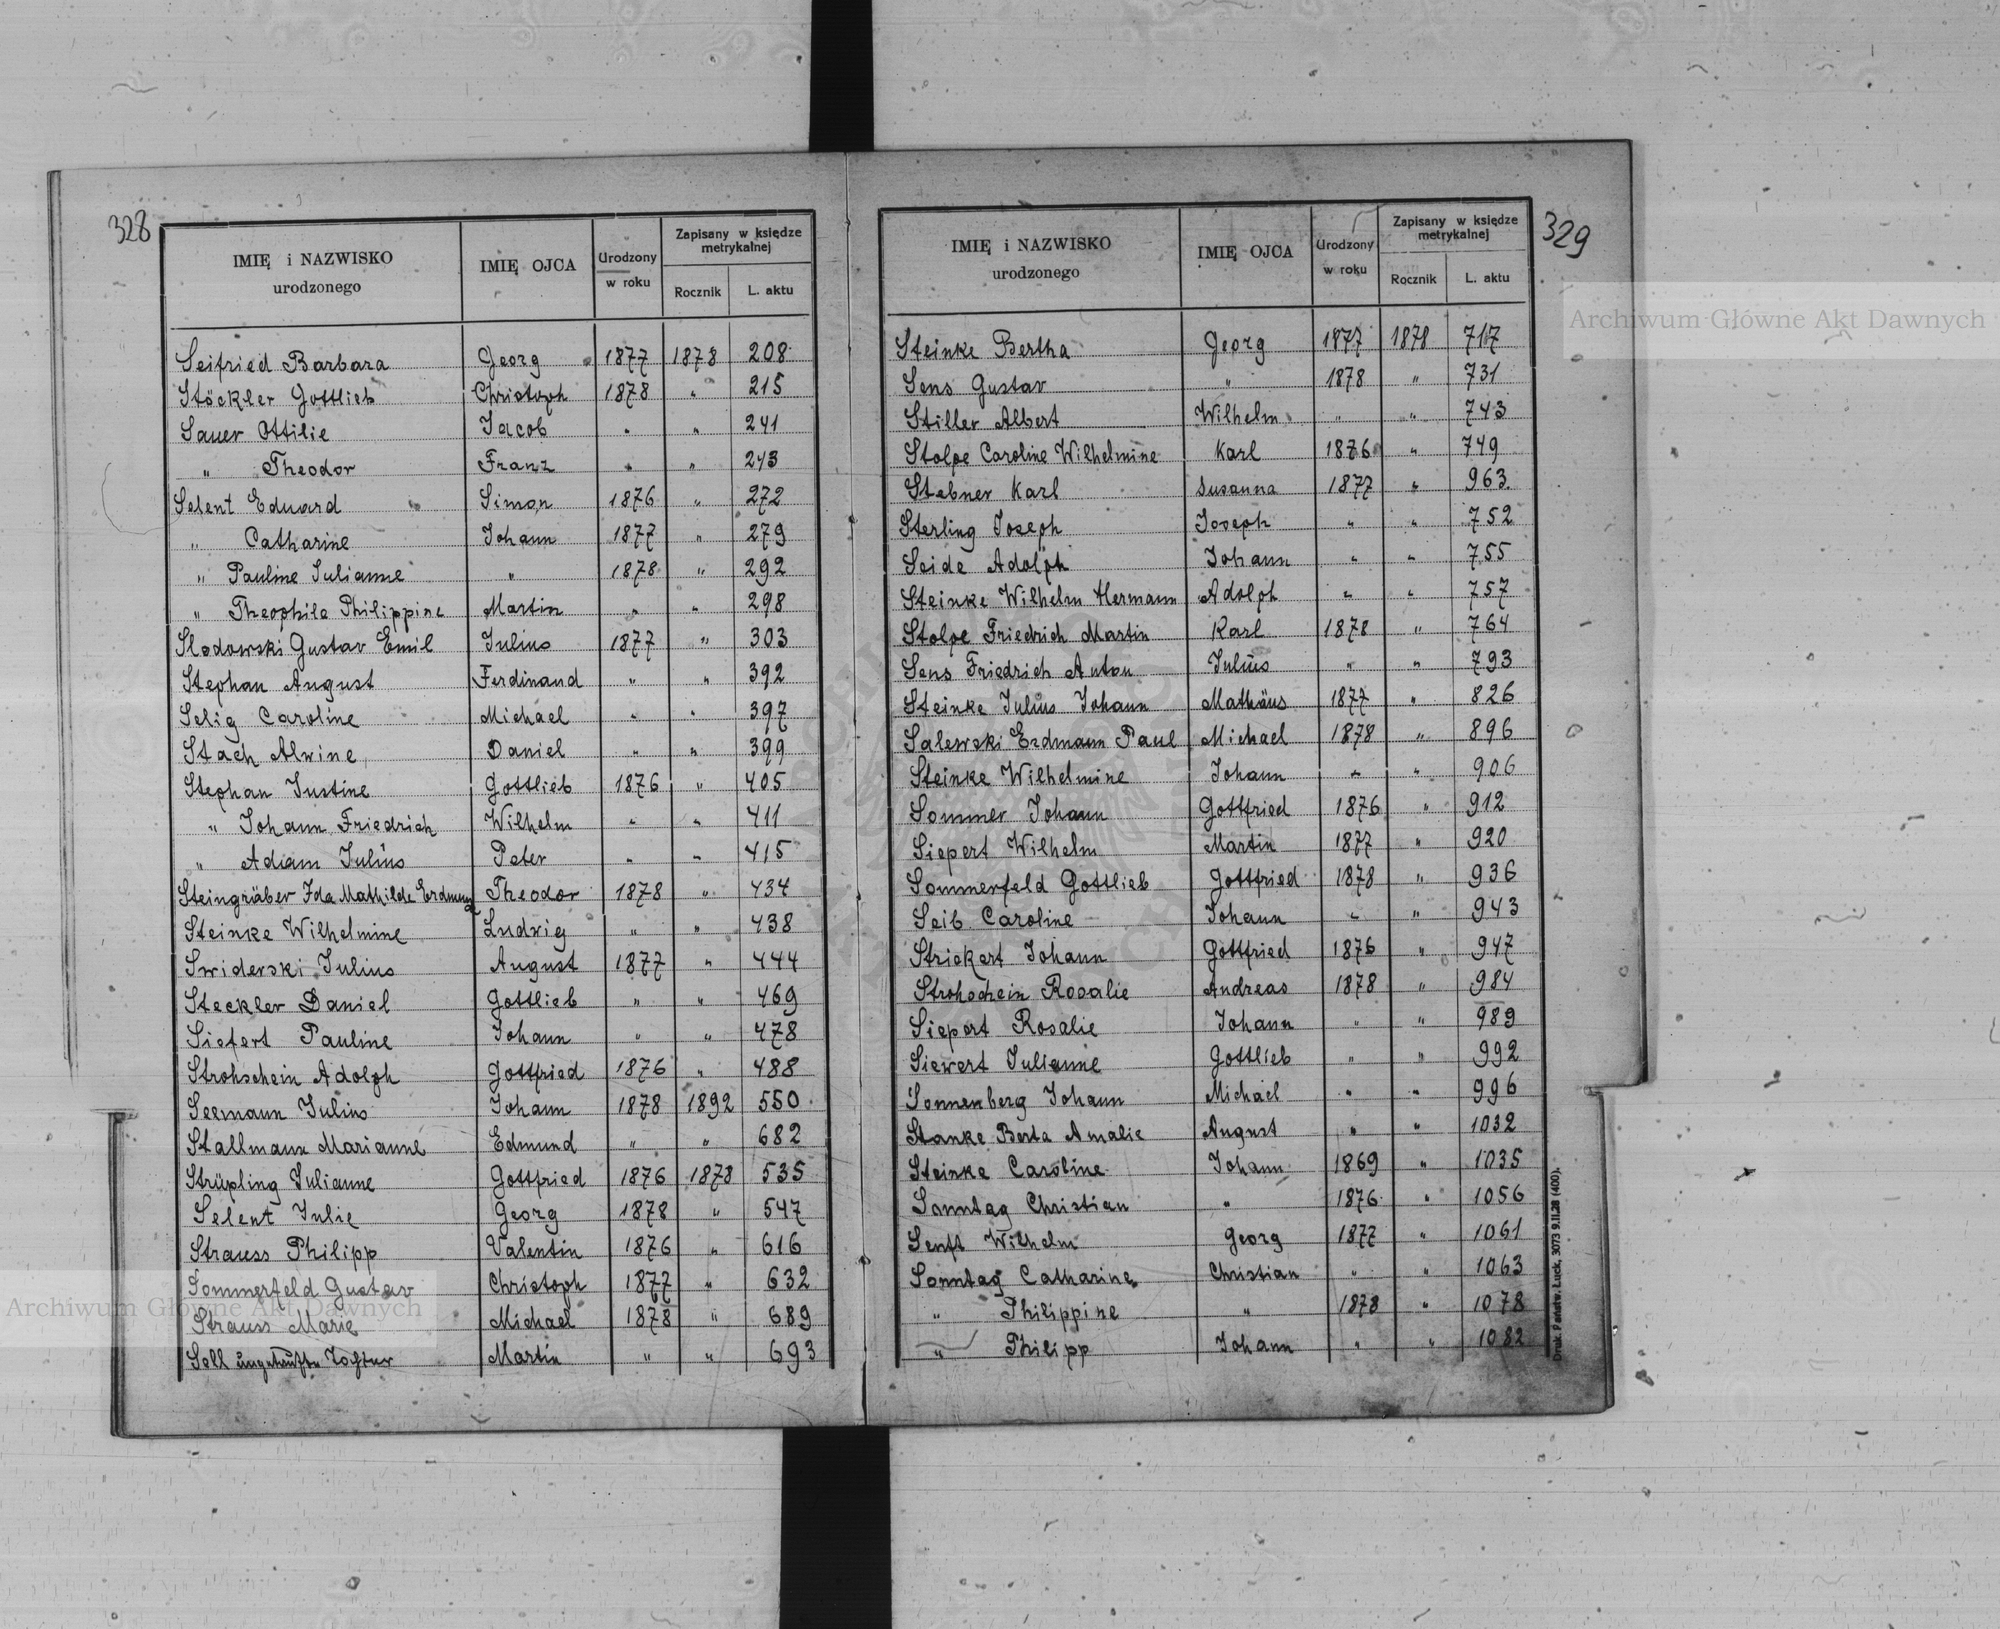 328
IMIĘ i NAZWISKO urodzonego IMIĘ OJCA Urodzony w roku Zapisany w księdze metrykalnej Rocznik L. aktu
Seifried Barbara Georg 1877 1878 208
Stöckler Gottlieb Christoph 1878 " 215
Sauer Ottilie Jacob " " 241
" Theodor Franz " " 243
Selent Eduard Simon 1876 " 272
" Catharine Johann 1877 " 279
" Pauline Julianne " 1878 " 292
" Theophile Philippine Martin " " 298
Slodowski Gustav Emil Julius 1877 " 303
Stephan August Ferdinand " " 392
Selig Caroline Michael " " 397
Stach Alwine Daniel " " 399
Stephan Justine Gottlieb 1876 " 405
" Johann Friedrich Wilhelm " " 411
" Adam Julius Peter " " 415
Steingräber Ida Mathilde Theodor 1878 " 434
Steinke Wilhelmine Ludwig " " 438
Swiderski Julius August 1877 " 444
Steckler Daniel Gottlieb " " 469
Siefert Pauline Johann " " 478
Strohschein Adolph Gottfried 1876 " 488
Seemann Julius Johann 1878 1892 550
Stallmann Marianne Edmund " " 682
Strüpling Julianne Gottfried 1876 1878 535
Selent Julie Georg 1878 " 547
Strauss Philipp Valentin 1876 " 616
Sommerfeld Gustav Christoph 1877 " 632
Strauss Marie Michael 1878 " 689
Sell ungetaufte Tochter Martin " " 693
329
IMIĘ i NAZWISKO urodzonego IMIĘ OJCA Urodzony w roku Zapisany w księdze metrykalnej Rocznik L. aktu
Steinke Bertha Georg 1877 1878 717
Sens Gustav " 1878 " 731
Stiller Albert Wilhelm " " 743
Stolpe Caroline Wilhelmine Karl 1876 " 749
Stebner Karl Susanna 1877 " 963
Sterling Joseph Joseph " " 752
Seide Adolph Johann " " 755
Steinke Wilhelm Hermann Adolph " " 757
Stolpe Friedrich Martin Karl 1878 " 764
Sens Friedrich Anton Julius " " 793
Steinke Julius Johann Mathäus 1877 " 826
Salewski Erdmann Paul Michael 1878 " 896
Steinke Wilhelmine Johann " " 906
Sommer Johann Gottfried 1876 " 912
Siepert Wilhelm Martin 1877 " 920
Sommerfeld Gottlieb Gottfried 1878 " 936
Seib Caroline Johann " " 943
Strickert Johann Gottfried 1876 " 947
Strohschein Rosalie Andreas 1878 " 984
Siepert Rosalie Johann " " 989
Siewert Julianne Gottlieb " " 992
Sonnenberg Johann Michael " " 996
Stanke Berta Amalie August " " 1032
Steinke Caroline Johann 1869 " 1035
Sonntag Christian " 1876 " 1056
Senft Wilhelm Georg 1877 " 1061
Sonntag Catharine Christian " " 1063
" Philippine " 1878 " 1078
" Philipp Johann " " 1082
Druk. Państw. Łuck, 3073 9.II.28 (400).
Archiwum Główne Akt Dawnych
Archiwum Główne Akt Dawnych